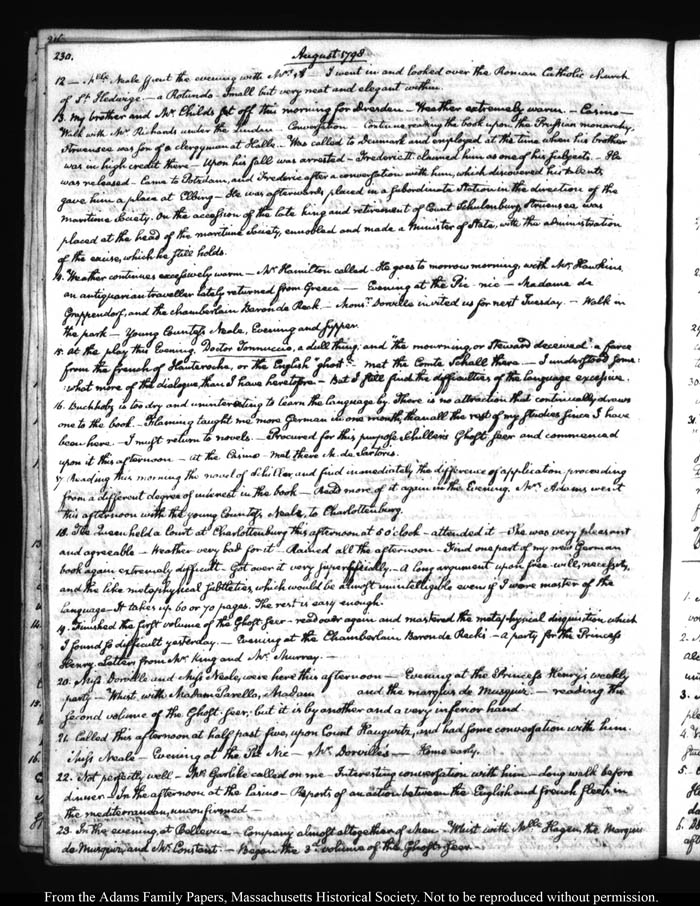 230.
August 1798
12 — Neale spent the evening with Mrs. A — I went in and looked over the Roman Catholic church
of St Hedwige. — a Rotunda. Small but very neat and elegant within.
13. My brother and Mr. Childs set off this morning for Dresden — Weather extremely warm. — Casino —
Walk with Mr Richards under the Linden. Conversation. Continue reading the book upon the Prussian monarchy,
Struensee was son of a clergyman at Halle. Was called to Denmark and employed at the time when his brother
was in high credit there. — Upon his fall was arrested — Frederic II. claimed him as one of his subjects. — He
was released. Came to Potsdam, and Frederic after a conversation with him, which discovered his talents
gave him a place at Elbing — He was afterwards placed in a subordinate station in the direction of the
maritime Society. On the accession of the late king and retirement of Count Schulenburg, Struensee was
placed at the head of the maritime Society, ennobled and made a Minister of State, with the administration
of the , which he still holds.
14. Weather continues excessively warm — Mr. Hamilton called. He goes to morrow morning, with Mr. Hawkins
an antiquarian traveller lately returned from Greece — Evening at the Pic-nic — Madame de
and the chamberlain Baron de Reck — Monsr. Dorville invited us for next Tuesday. — Walk in
the park — Young Countess Neale, Evening and supper
15. At the play this Evening. Doctor , a dull thing; and "the mourning, or Steward deceived" a farce
from the french of Hauteroche, or the English "ghost." met the Comte Schall there — I understood some:
:what more of the dialogue, than I have heretofore — But I still find the difficulties of the language excessive.
16. Buchholz is too dry and uninteresting to learn the language by. There is no attraction that continually draws
one to the book. Flaming taught me more German in one month, than all the rest of my studies since I have
been here. I must return to novels. — Procured for this purpose Schiller's Ghost-Seer and commenced
upon it this afternoon — at the Casino. Met there M. de Sartoris.
17 Reading this morning the novel of Schiller, and find immediately the difference of application proceeding
from a different degree of interest in the book — Read more of it again in the Evening. Mrs Adams went
this afternoon with the young Countess Neale, to Charlottenburg.
18. The Queen held a Court at Charlottenburg this afternoon at 6 o'clock — attended it — She was very pleasant
and agreeable — Weather very bad for it — Rained all the afternoon. Find one part of my new German
book again extremely difficult. Got over it very superficially. — A long argument upon free-will, necessity,
and the like metaphysical subtleties, which would be almost unintelligible even if I were master of the
language — It takes up 60 or 70 pages. The rest is easy enough.
19. Finished the first volume of the Ghost-Seer — read over again and mastered the metaphysical disquisition which
I found so difficult yesterday. — Evening at the Chamberlain Baron de Reck's — a party for the Princess
Henry. Letters from Mr. King and Mr. Murray. —
20. Miss Dorville and Miss Neale, were here this afternoon — Evening at the Princess Henry's weekly
party — Whist with Madame Parella, Madam and the marquis de Musquiz. — reading the
second volume of the Ghost-Seer; but it is by another and a very inferior hand.
21. Called this afternoon at half past five, upon Count Haugwitz, and had some conversation with him.
Miss Neale — Evening at the Pic Nic — Mr Dorville's — Home early.
22. Not perfectly well — Mr Garlike called on me — Interesting conversation with him — Long walk before
dinner. — In the afternoon at the Casino — Reports of an action between the English and french fleets, in
the mediterranean, unconfirmed —
23. In the evening, at Bellevue — Company almost altogether of Men — Whist with Mlle Hagen, the Marquis
de Musquiz and Mr. Constant. — Began the 3d volume of the Ghost-Seer.
From the Adams Family Papers, Massachusetts Historical Society. Not to be reproduced without permission.